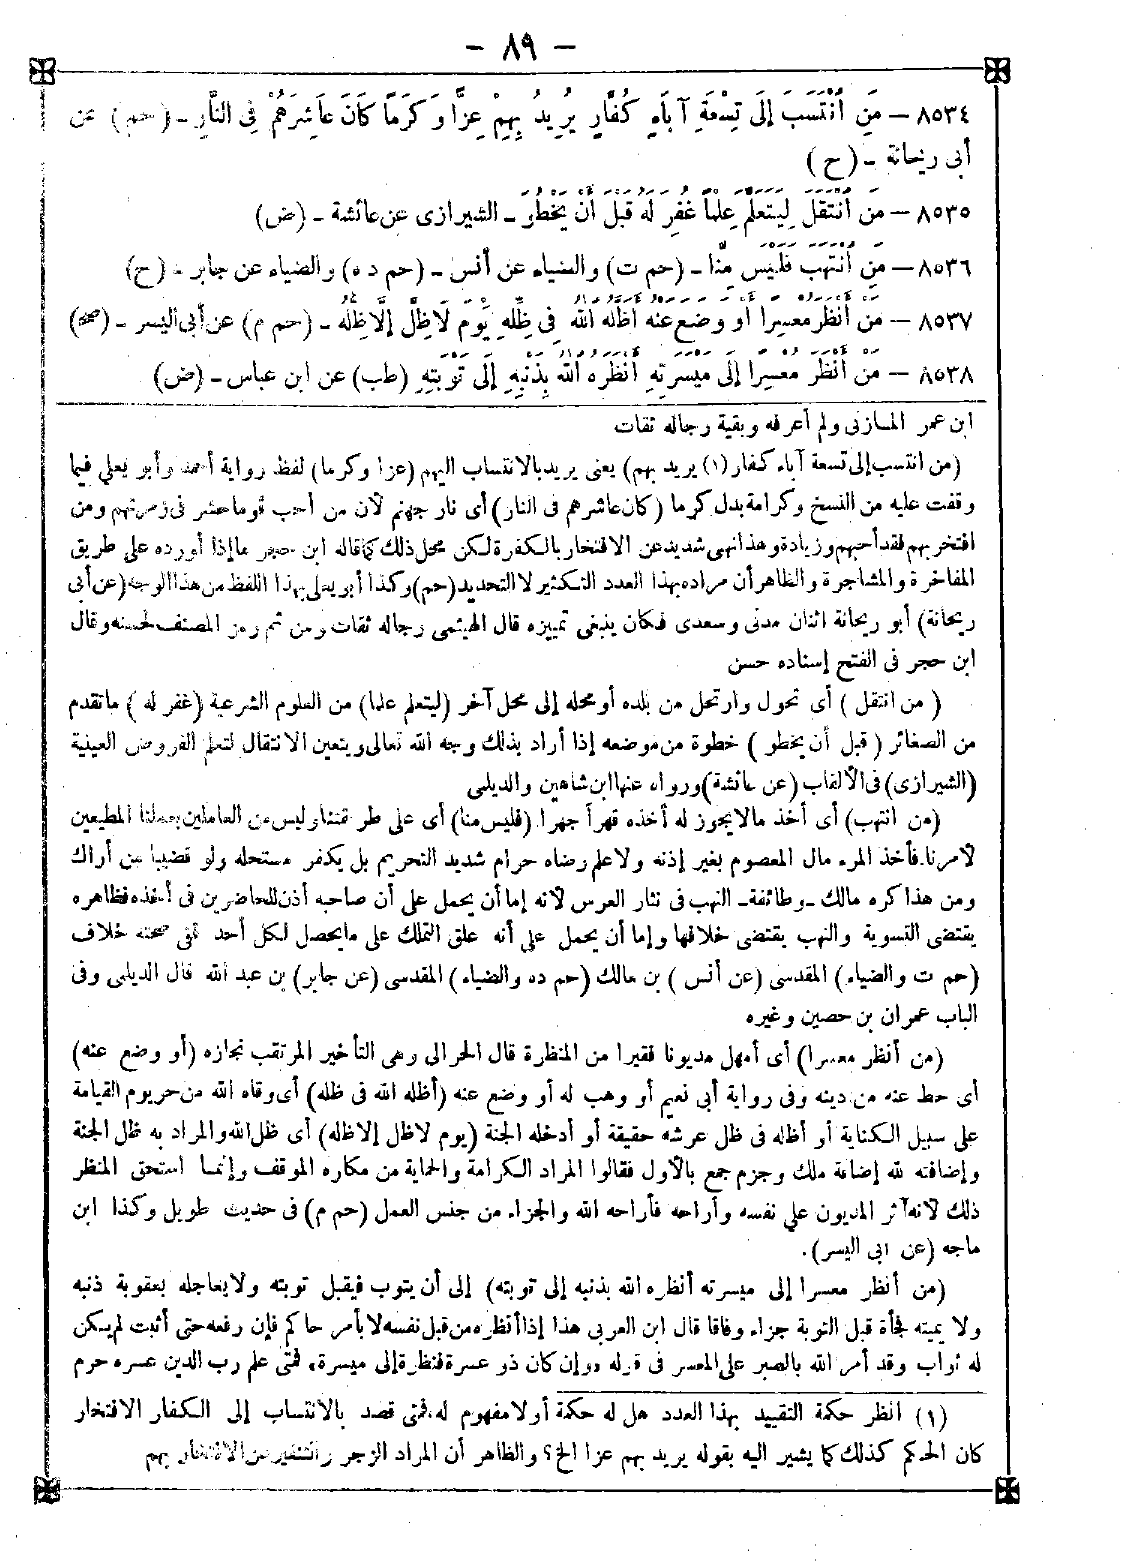 - ٨٩ -
٨٥٣٤ — مَنِ انْتَسَبَ إِلَى تِسْعَةِ آبَاءِ كُفَّارٍ يُرِيدُ بِهِمْ عِزًّا وَكَرَمًا كَانَ عَاشِرَهُمْ فِي النَّارِ - (حم) عن
أبى ريحانة - (ح)
٨٥٣٥ — مَنِ انْتَقَلَ لِيَتَعَلَّمَ عِلْمًا غُفِرَ لَهُ قَبْلَ أَنْ يَخْطُوَ - الشيرازى عن عائشة - (ض)
٨٥٣٦ — مَنِ انْتَهَبَ فَلَيْسَ مِنَّا - (حم ت) والضياء عن أنس - (حم د ه) والضياء عن جابر - (ح)
٨٥٣٧ — مَنْ أَنْظَرَ مُعْسِرًا أَوْ وَضَعَ عَنْهُ أَظَلَّهُ اللهُ فِي ظِلِّهِ يَوْمَ لَا ظِلَّ إِلَّا ظِلُّهُ - (حم م) عن أبى اليسر - (صح)
٨٥٣٨ — مَنْ أَنْظَرَ مُعْسِرًا إِلَى مَيْسَرَتِهِ أَنْظَرَهُ اللهُ بِذَنْبِهِ إِلَى تَوْبَتِهِ (طب) عن ابن عباس - (ض)
ابن عمر المازنى ولم أعرفه وبقية رجاله ثقات
(من انتسب إلى تسعة آباء كفار (١) يريد بهم) يعنى يريد بالانتساب اليهم (عزا وكرما) لفظ رواية أحمد وأبو يعلي فيما
وقفت عليه من النسخ وكرامة بدل كرما (كان عاشرهم فى النار) أى نار جهنم لأن من أحب قوما حشر فى زمرتهم ومن
افتخر بهم فقد أحبهم وزيادة وهذا نهى شديد عن الافتخار بالكفرة لكن محل ذلك كما قاله ابن حجر ما إذا أورده على طريق
المفاخرة والمشاجرة والظاهر أن مراده بهذا العدد التكثير لا التحديد (حم) وكذا أبو يعلى بهذا اللفظ من هذا الوجه (عن أبى
ريحانة) أبو ريحانة اثنان مدنى وسعدى فكان ينبغى تمييزه قال الهيثمى رجاله ثقات ومن ثم رمز المصنف لحسنه وقال
ابن حجر فى الفتح إسناده حسن
(من انتقل) أى تحول وارتحل من بلده أو محله إلى محل آخر (ليتعلم علما) من العلوم الشرعية (غفر له) ما تقدم
من الصغائر (قبل أن يخطو) خطوة من موضعه إذا أراد بذلك وجه الله تعالى ويتعين الانتقال لتعلم الفروض العينية
(الشيرازى) فى الألقاب (عن عائشة) ورواه عنها ابن شاهين والديلمى
(من انتهب) أى أخذ مالا يجوز له أخذه قهرا جهرا (فليس منا) أى على طريقتنا وليس من العاملين بعملنا المطيعين
لأمرنا. فأخذ المرء مال المعصوم بغير إذنه ولا علم رضاه حرام شديد التحريم بل يكفر مستحله ولو قضيبا من أراك
ومن هذا كره مالك - وطائفة - النهب فى نثار العرس لأنه إما أن يحمل على أن صاحبه أذن للحاضرين فى أخذه فظاهره
يقتضى التسوية والنهب يقتضى خلافها وإما أن يحمل على أنه علق التملك على ما يحصل لكل أحد ففى صحته خلاف
(حم ت والضياء) المقدسى (عن أنس) بن مالك (حم ده والضياء) المقدسى (عن جابر) بن عبد الله قال الديلمى وفى
الباب عمران بن حصين وغيره
(من أنظر معسرا) أى أمهل مديونا فقيرا من المنظرة قال الحرالى وهى التأخير المرتقب نجازه (أو وضع عنه)
أى حط عنه من دينه وفى رواية أبى نعيم أو وهب له أو وضع عنه (أظله الله فى ظله) أى وقاه الله من حر يوم القيامة
على سبيل الكناية أو أظله فى ظل عرشه حقيقة أو أدخله الجنة (يوم لا ظل إلا ظله) أى ظل الله والمراد به ظل الجنة
وإضافته لله إضافة ملك وجزم جمع بالأول فقالوا المراد الكرامة والحماية من مكاره الموقف وإنما استحق المنظر
ذلك لأنه آثر المديون على نفسه وأراحه فأراحه الله والجزاء من جنس العمل (حم م) فى حديث طويل وكذا ابن
ماجه (عن ابى اليسر).
(من أنظر معسرا إلى ميسرته أنظره الله بذنبه إلى توبته) إلى أن يتوب فيقبل توبته ولا يعاجله بعقوبة ذنبه
ولا يميته فجأة قبل التوبة جزاء وفاقا قال ابن العربى هذا إذا أنظره من قبل نفسه لا بأمر حاكم فإن رفعه حتى أثبت لم يكن
له ثواب وقد أمر الله بالصبر على المعسر فى قوله «وإن كان ذو عسرة فنظرة إلى ميسرة» فمتى علم رب الدين عسره حرم
(١) انظر حكمة التقييد بهذا العدد هل له حكمة أولا مفهوم له، فمتى قصد بالانتساب إلى الكفار الافتخار
كان الحكم كذلك كما يشير اليه بقوله يريد بهم عزا الخ؟ والظاهر أن المراد الزجر والتنفير عن الافتخار بهم